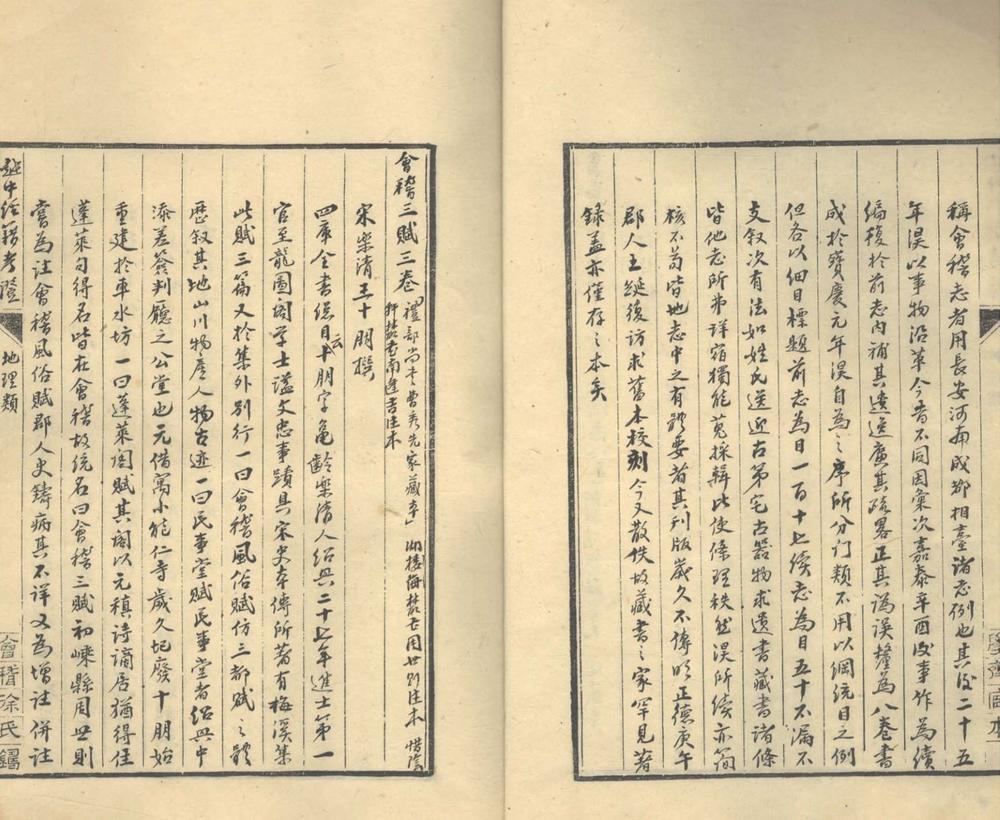 稱會稽志者用長安河南成都相臺諸志例也其後二十五
年淏以事物沿革今昔不同因彙次嘉泰辛酉後事作為續
編複於前志內補其遺逸廣其疏畧正其譌誤釐為八卷書
成於寶慶元年淏自為之序所分门類不用以綱統目之例
但各以細目標題前志為目一百十七續志為目五十不漏不
支叙次有法如姓氏送迎古第宅古器物求遺書藏書諸條
皆他志所弗詳宿獨能蒐採輯比使條理秩然淏所續亦簡
核不苟皆地志中之有體要者其刊版歲久不傳明正德庚午
郡人王綖復访求舊本校刻今又散佚故藏書之家罕見著
錄盖亦僅存之本矣
會稽三賦三卷 禮部尚書曹秀先家藏本 湖樓海叢書周世則注本 惜陰
軒叢書南逢吉注本
宋樂清王十朋撰
四庫全書總目云十朋字龜齡樂清人紹興二十七年進士第一
官至龍圖阁学士諡文忠事蹟具宋史本傳所著有梅溪集
此賦三篇又於集外别行一曰會稽風俗賦仿三都賦之體
歷叙其地山川物產人物古迹一曰民事堂賦民事堂者紹興中
添差簽判廳之公堂也元借寓小能仁寺歲久圮廢十朋始
重建於車水坊一曰蓬萊阁賦其阁以元稹诗謫居猶得住
蓬萊句得名皆在會稽故统名曰會稽三賦初嵊縣周世則
嘗為注會稽風俗賦郡人史鑄病其不详又為增注併注
越中经籍考證
地理類
會稽徐氏鑄